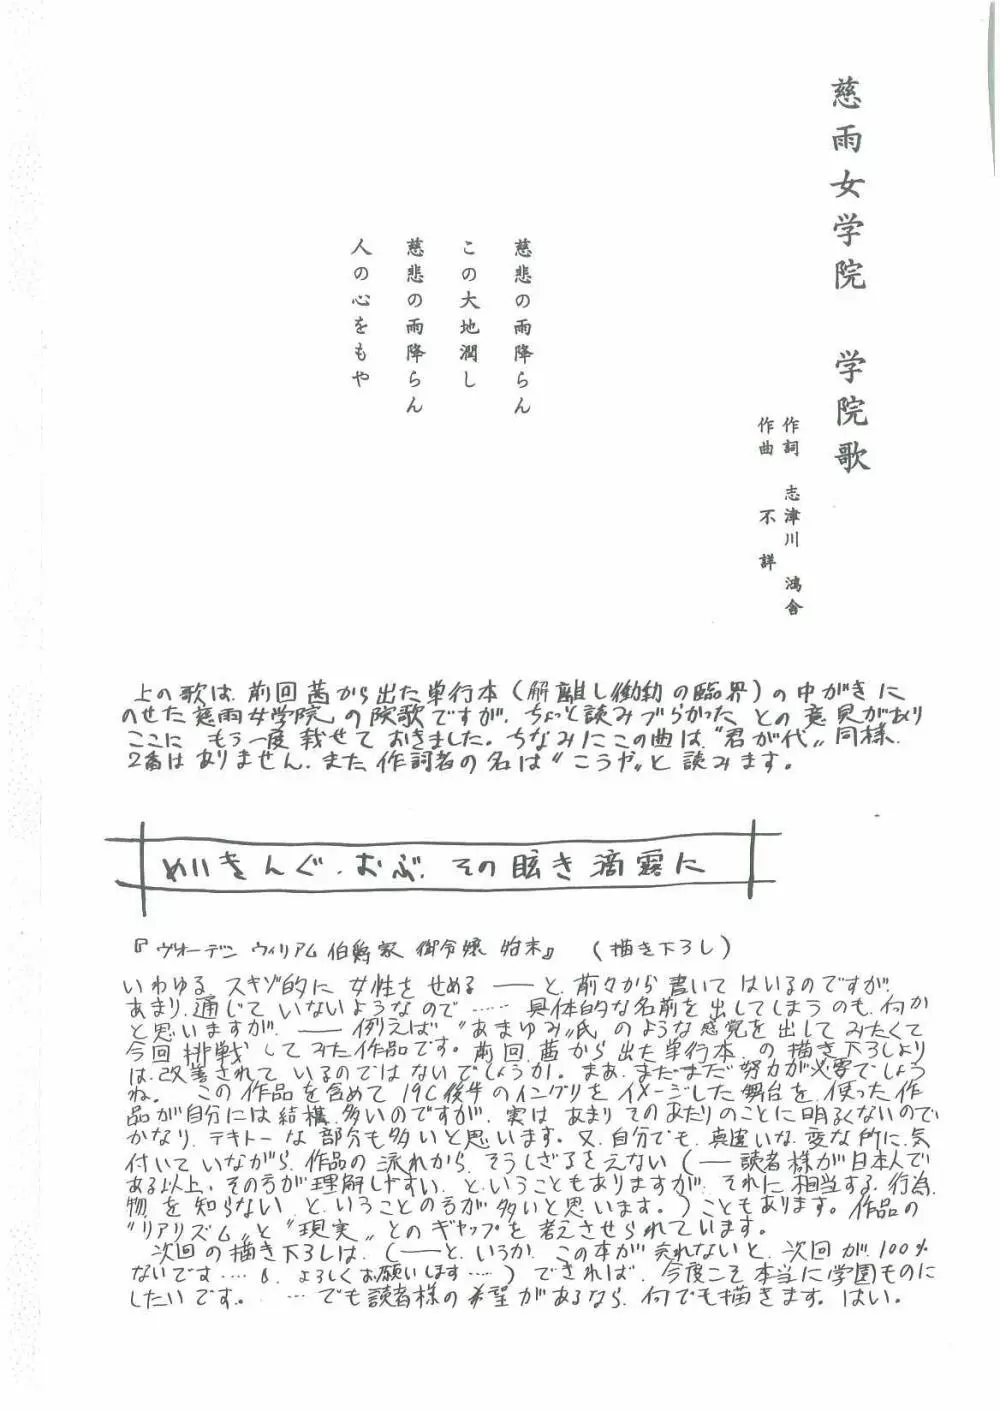 慈雨女学院 学院歌
作詞 志津川 鴻舎
作曲 不詳
慈悲の雨降らん
この大地潤し
慈悲の雨降らん
人の心をもや
上の歌は、前回茜から出た単行本(解離し働動の臨界)の中がきに
のせた慈雨女学院の院歌ですが、ちょっと読みづらかったとの意見があり
ここにもう一度載せておきました。ちなみにこの曲は、“君が代”同様、
2番はありません。また、作詞者の名は“こうや”と読みます。
めいきんぐ・おぶ・その眩き滴霧に
『ヴォーデン ウィリアム伯爵家 御令嬢 始末』 (描き下ろし)
いわゆる、スキゾ的に女性をせめる――と、前々から書いてはいるのですが、
あまり、通じていないようなので…… 具体的な名前を出してしまうのも、何か
と思いますが、―― 例えば“あまゆみ”氏のような感覚を出してみたくて
今回挑戦してみた作品です。前回、茜から出た単行本の描き下ろしより
は、改善されているのではないでしょうか。まあ、まだまだ努力が必要でしょう
ね。この作品を含めて19C後半のイングリをイメージした舞台を、使った作
品が自分には結構、多いのですが、実は、あまりそのあたりのことに明るくないので
かなり、テキトーな部分も多いと思います。又、自分でも、真違いな、変な所に、気
付いていながら、作品の流れから、そうしざるをえない(――読者様が日本人で
ある以上、その方が理解しやすい、ということもありますが、それに相当する、行為、
物を知らない、ということの方が多いと思います。)こともあります。作品の
“リアリズム”と“現実”とのギャップを考えさせられています。
次回の描き下ろしは、(――と、いうか、この本が売れないと、次回が、100%
ないです…… よろしくお願いします……)できれば、今度こそ本当に学園ものに
したいです。……でも読者様の希望があるなら、何でも描きます。はい。